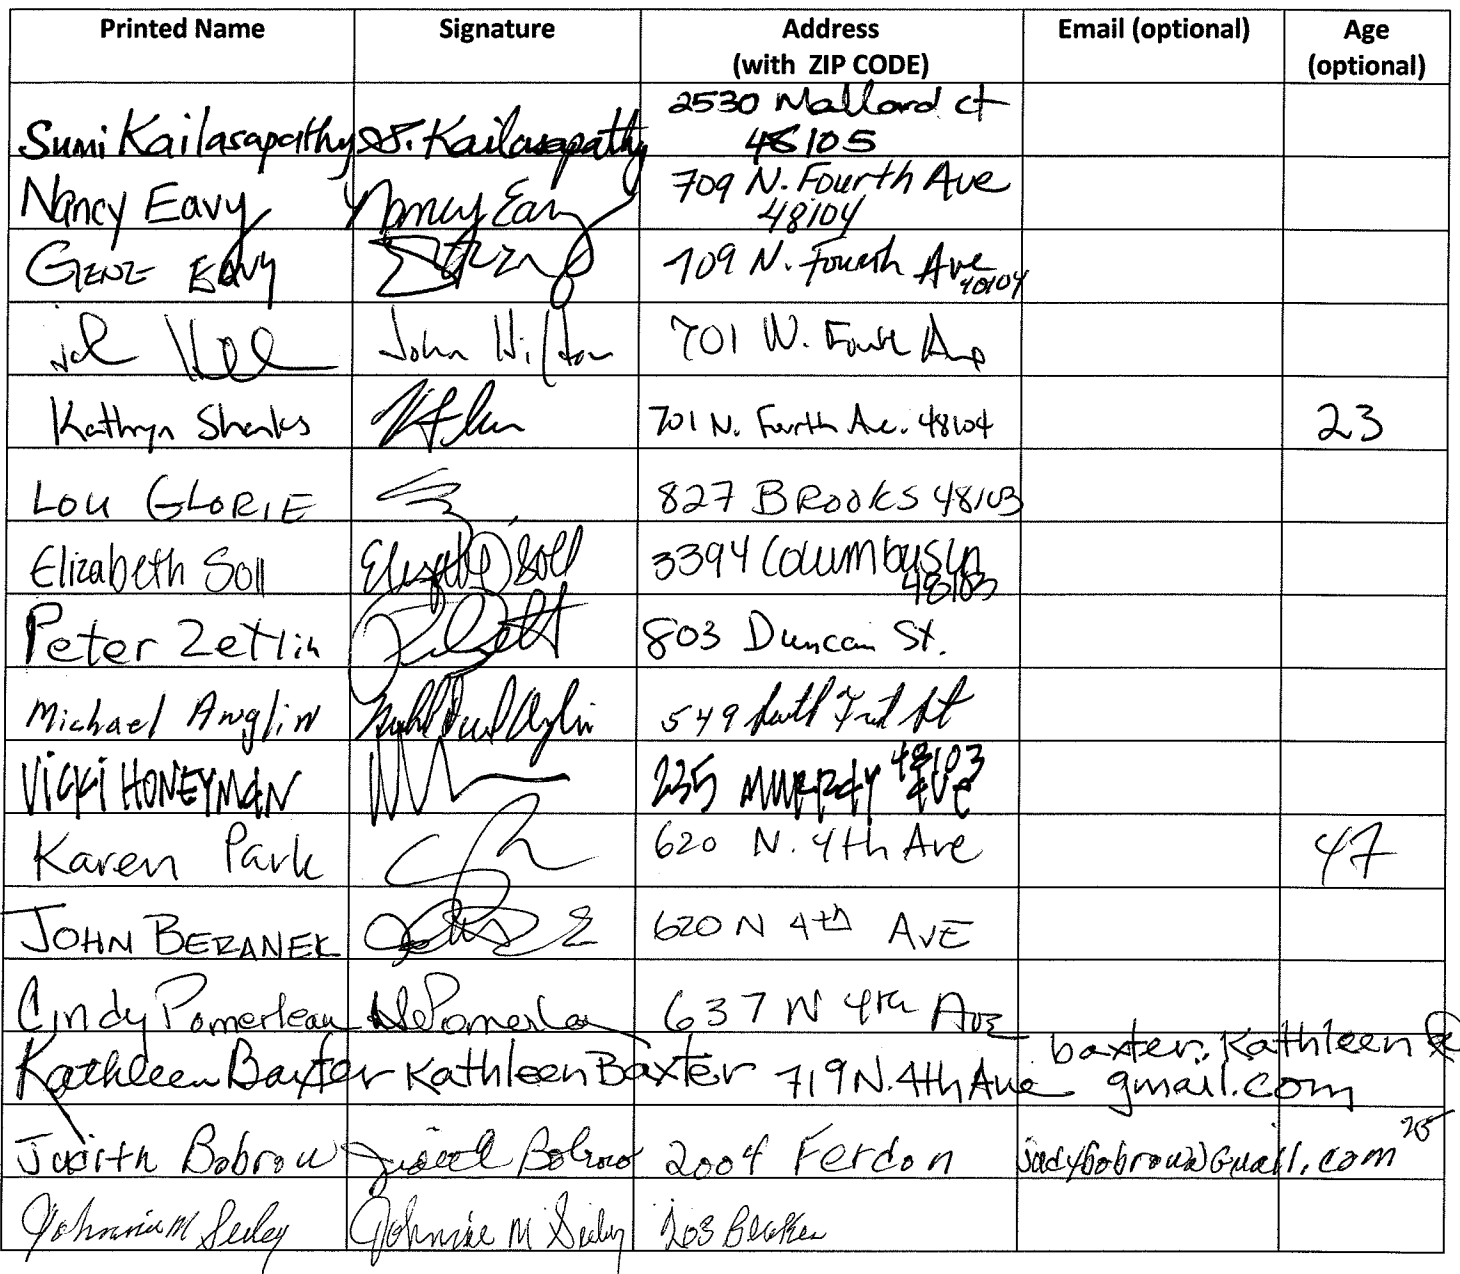 Printed Name Signature Address (with ZIP CODE) Email (optional) Age (optional)
Sumi Kailasapathy S. Kailasapathy 2530 Mallard ct 48105
Nancy Eavy Nancy Eavy 709 N. Fourth Ave 48104
GENE EAVY 709 N. Fourth Ave 48104
John Hilton 701 N. Fourth Ave
Kathryn Shanks 701 N. Fourth Ave. 48104 23
LOU GLORIE 827 BROOKS 48103
Elizabeth Soll Elizabeth Soll 3394 Columbus Ln 48103
Peter Zetlin 803 Duncan St.
Michael Anglin 549 South First St
VICKI HONEYMAN 235 MURRAY AVE 48103
Karen Park 620 N. 4th Ave 47
JOHN BERANEK 620 N 4th AVE
Cindy Pomerleau Pomerleau 637 N 4th AVE
Kathleen Baxter Kathleen Baxter 719 N. 4th Ave baxter.kathleen@gmail.com
Judith Bobrow Judith Bobrow 2004 Ferdon judybobrow@gmail.com
Johnnie M Seeley Johnnie M Seeley 203